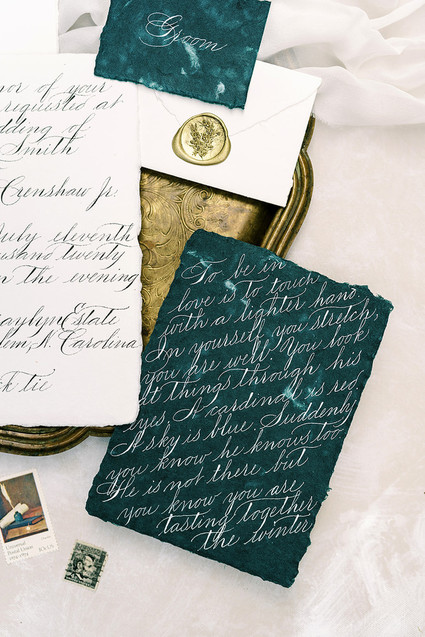 Groom
nor of your
requested at
dding of
Smith
Crenshaw Jr.
July eleventh
ousand twenty
in the evening
raylyn Estate
lem, N. Carolina
ck tie
To be in
love is to touch
with a lighter hand.
In yourself you stretch,
you are well. You look
at things through his
eyes. A cardinal is red.
A sky is blue. Suddenly
you know he knows too.
He is not there but
you know you are
tasting together
the winter
Universal
Postal Union
1874-1974
10c US